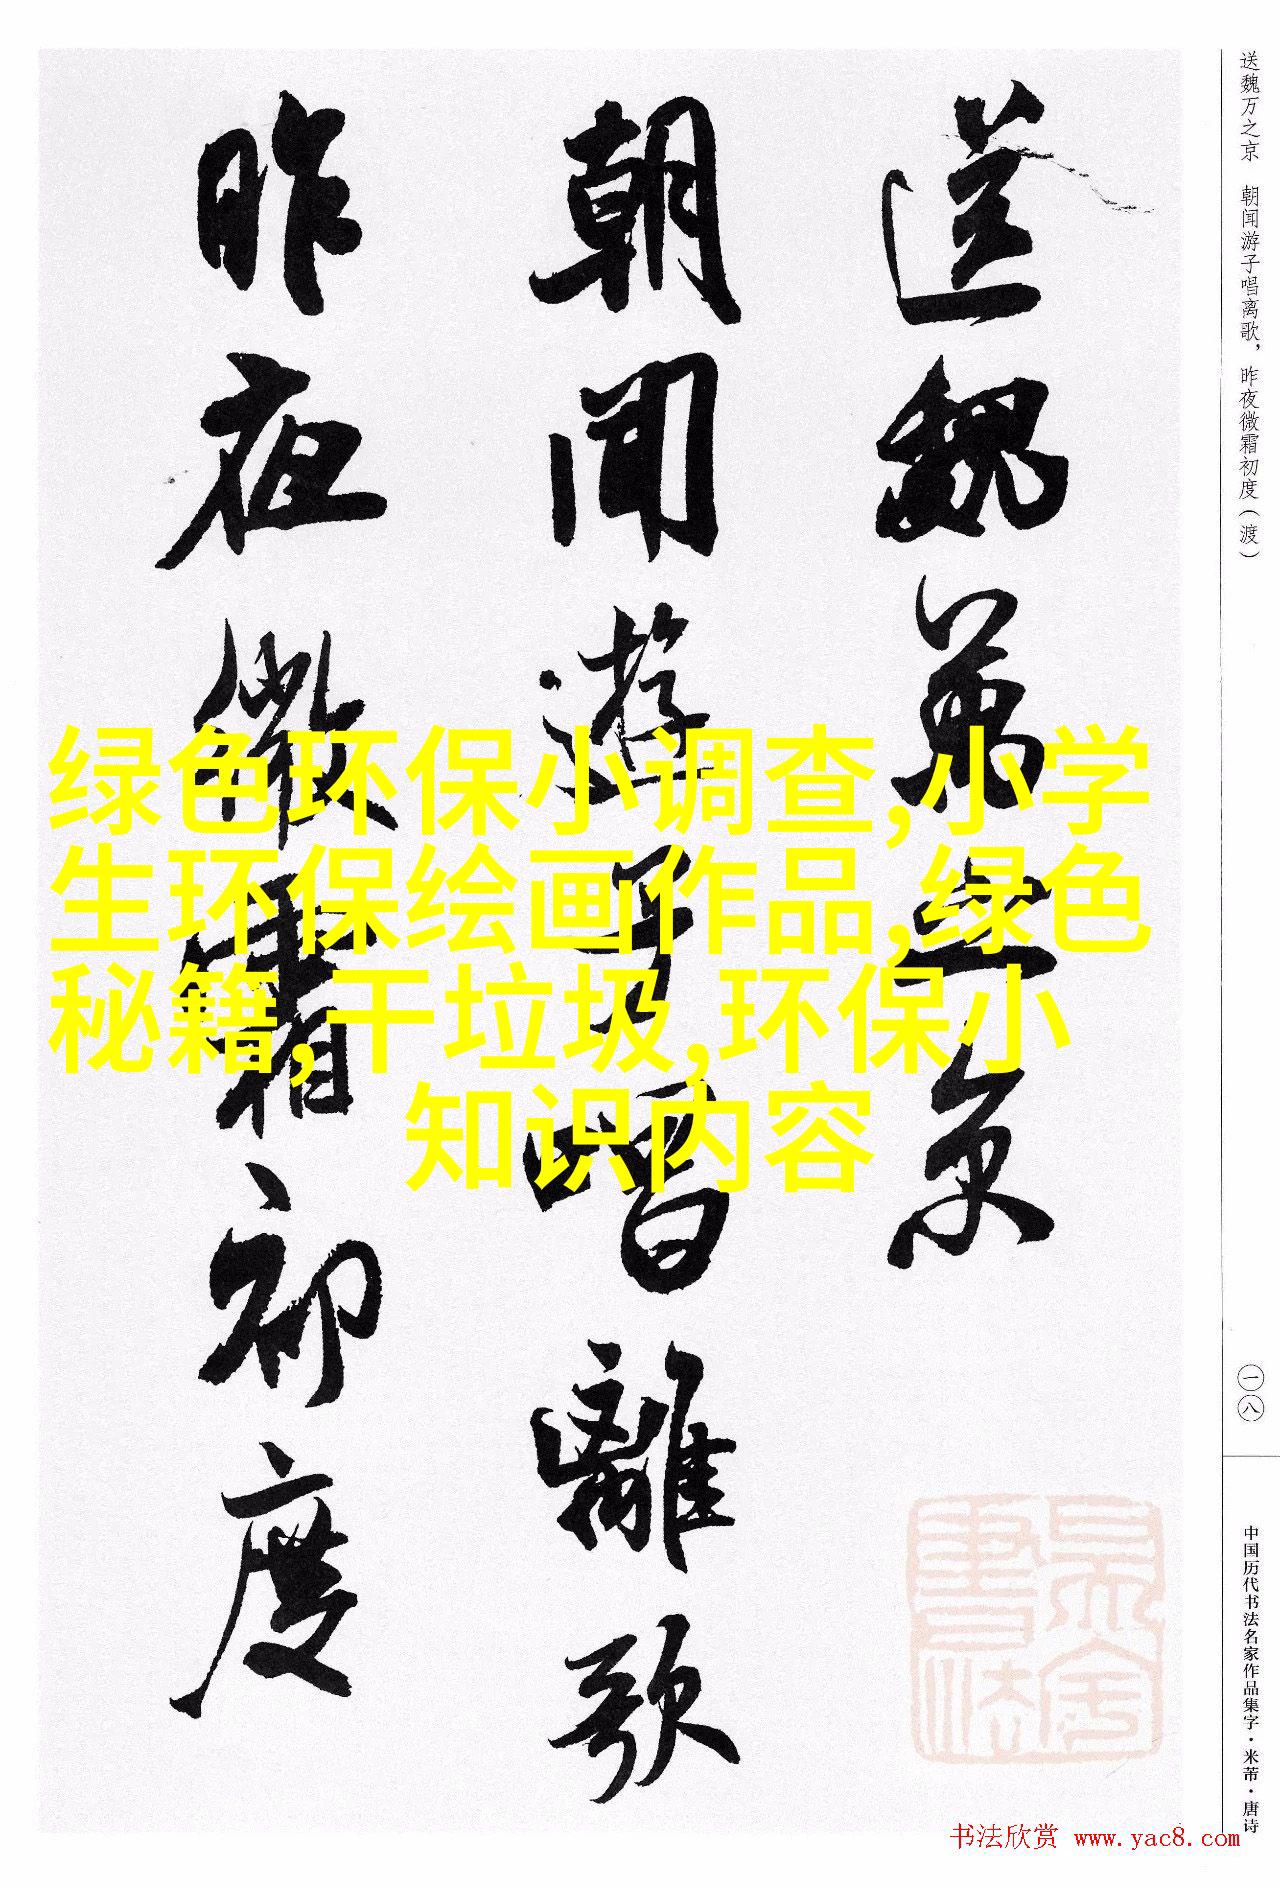 送魏万之京
朝闻游子唱離歌
昨夜微霜初度
绿色环保小调查,小学
生环保绘画作品,绿色
秘籍,干垃圾,环保小
知识内容
送魏万之京 朝闻游子唱离歌，昨夜微霜初度（渡）
一八
中国历代书法名家作品集字·米芾·唐诗
书法欣赏 www.yac8.com